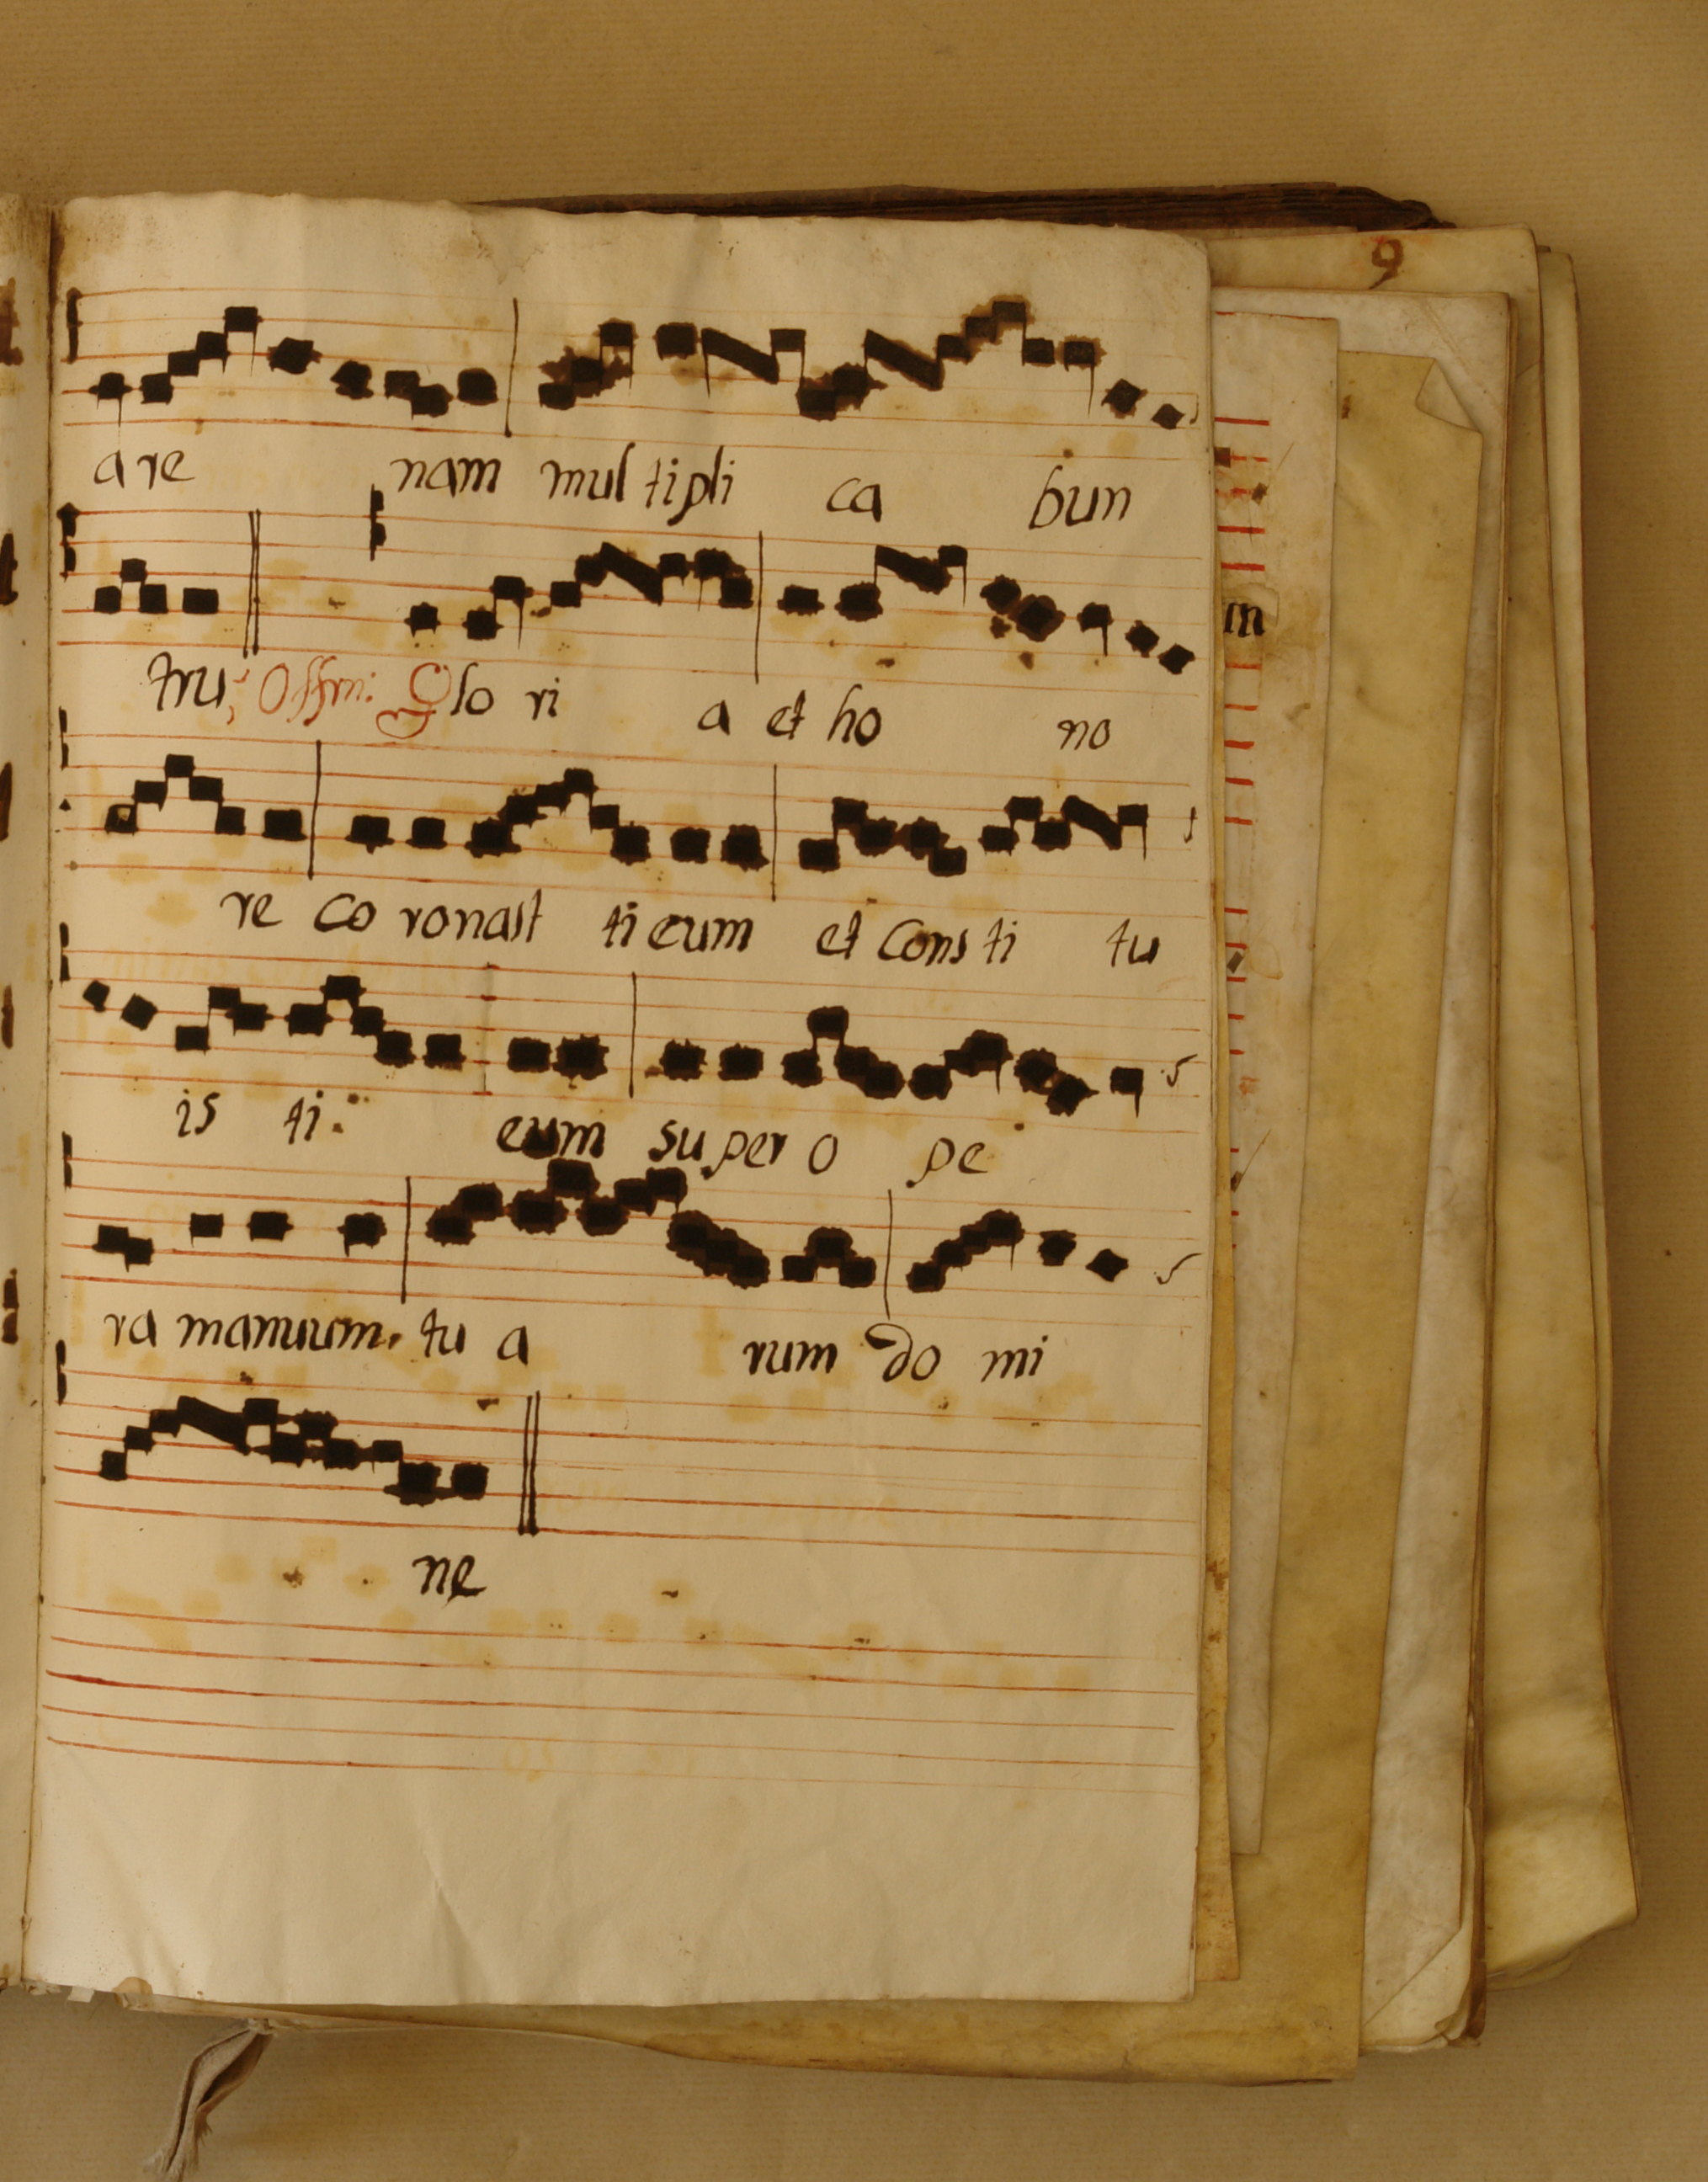 9
are nam mul tipli ca bun
in
tru; Offrn: Glo ri a et ho no
re co ronast ti eum et Cons ti tu
is ti: eum super o pe
ra manuum. tu a rum do mi
ne